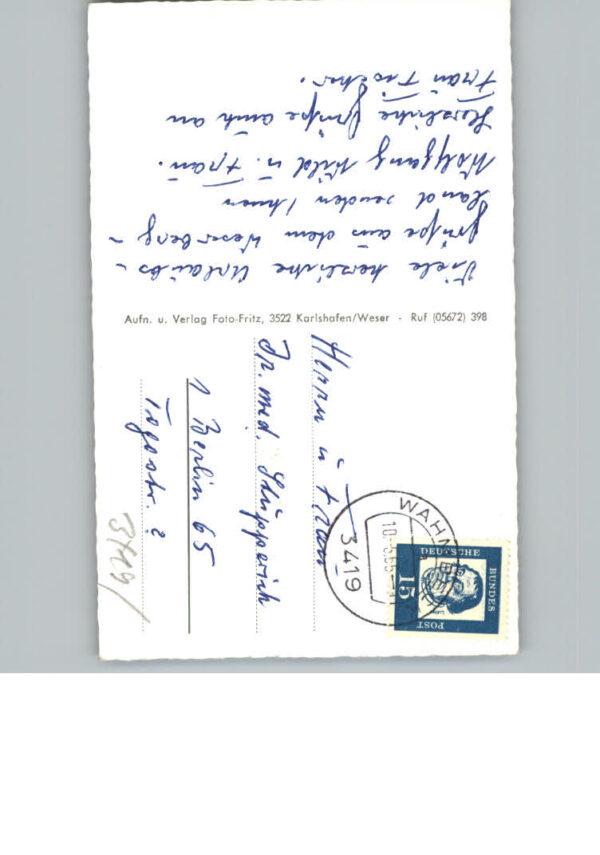 Viele herzliche Urlaubs-
grüße aus dem Weserberg-
land senden Ihnen
Wolfgang Wild u. Frau.
Herzliche Grüße auch an
Frau
Aufn. u. Verlag Foto-Fritz, 3522 Karlshafen/Weser - Ruf (05672) 398
Herrn u. Frau
Dr. med. Stupperich
1 Berlin 65
Togostr. 2
3419
WAHM
DEUTSCHE
BUNDES
POST
15